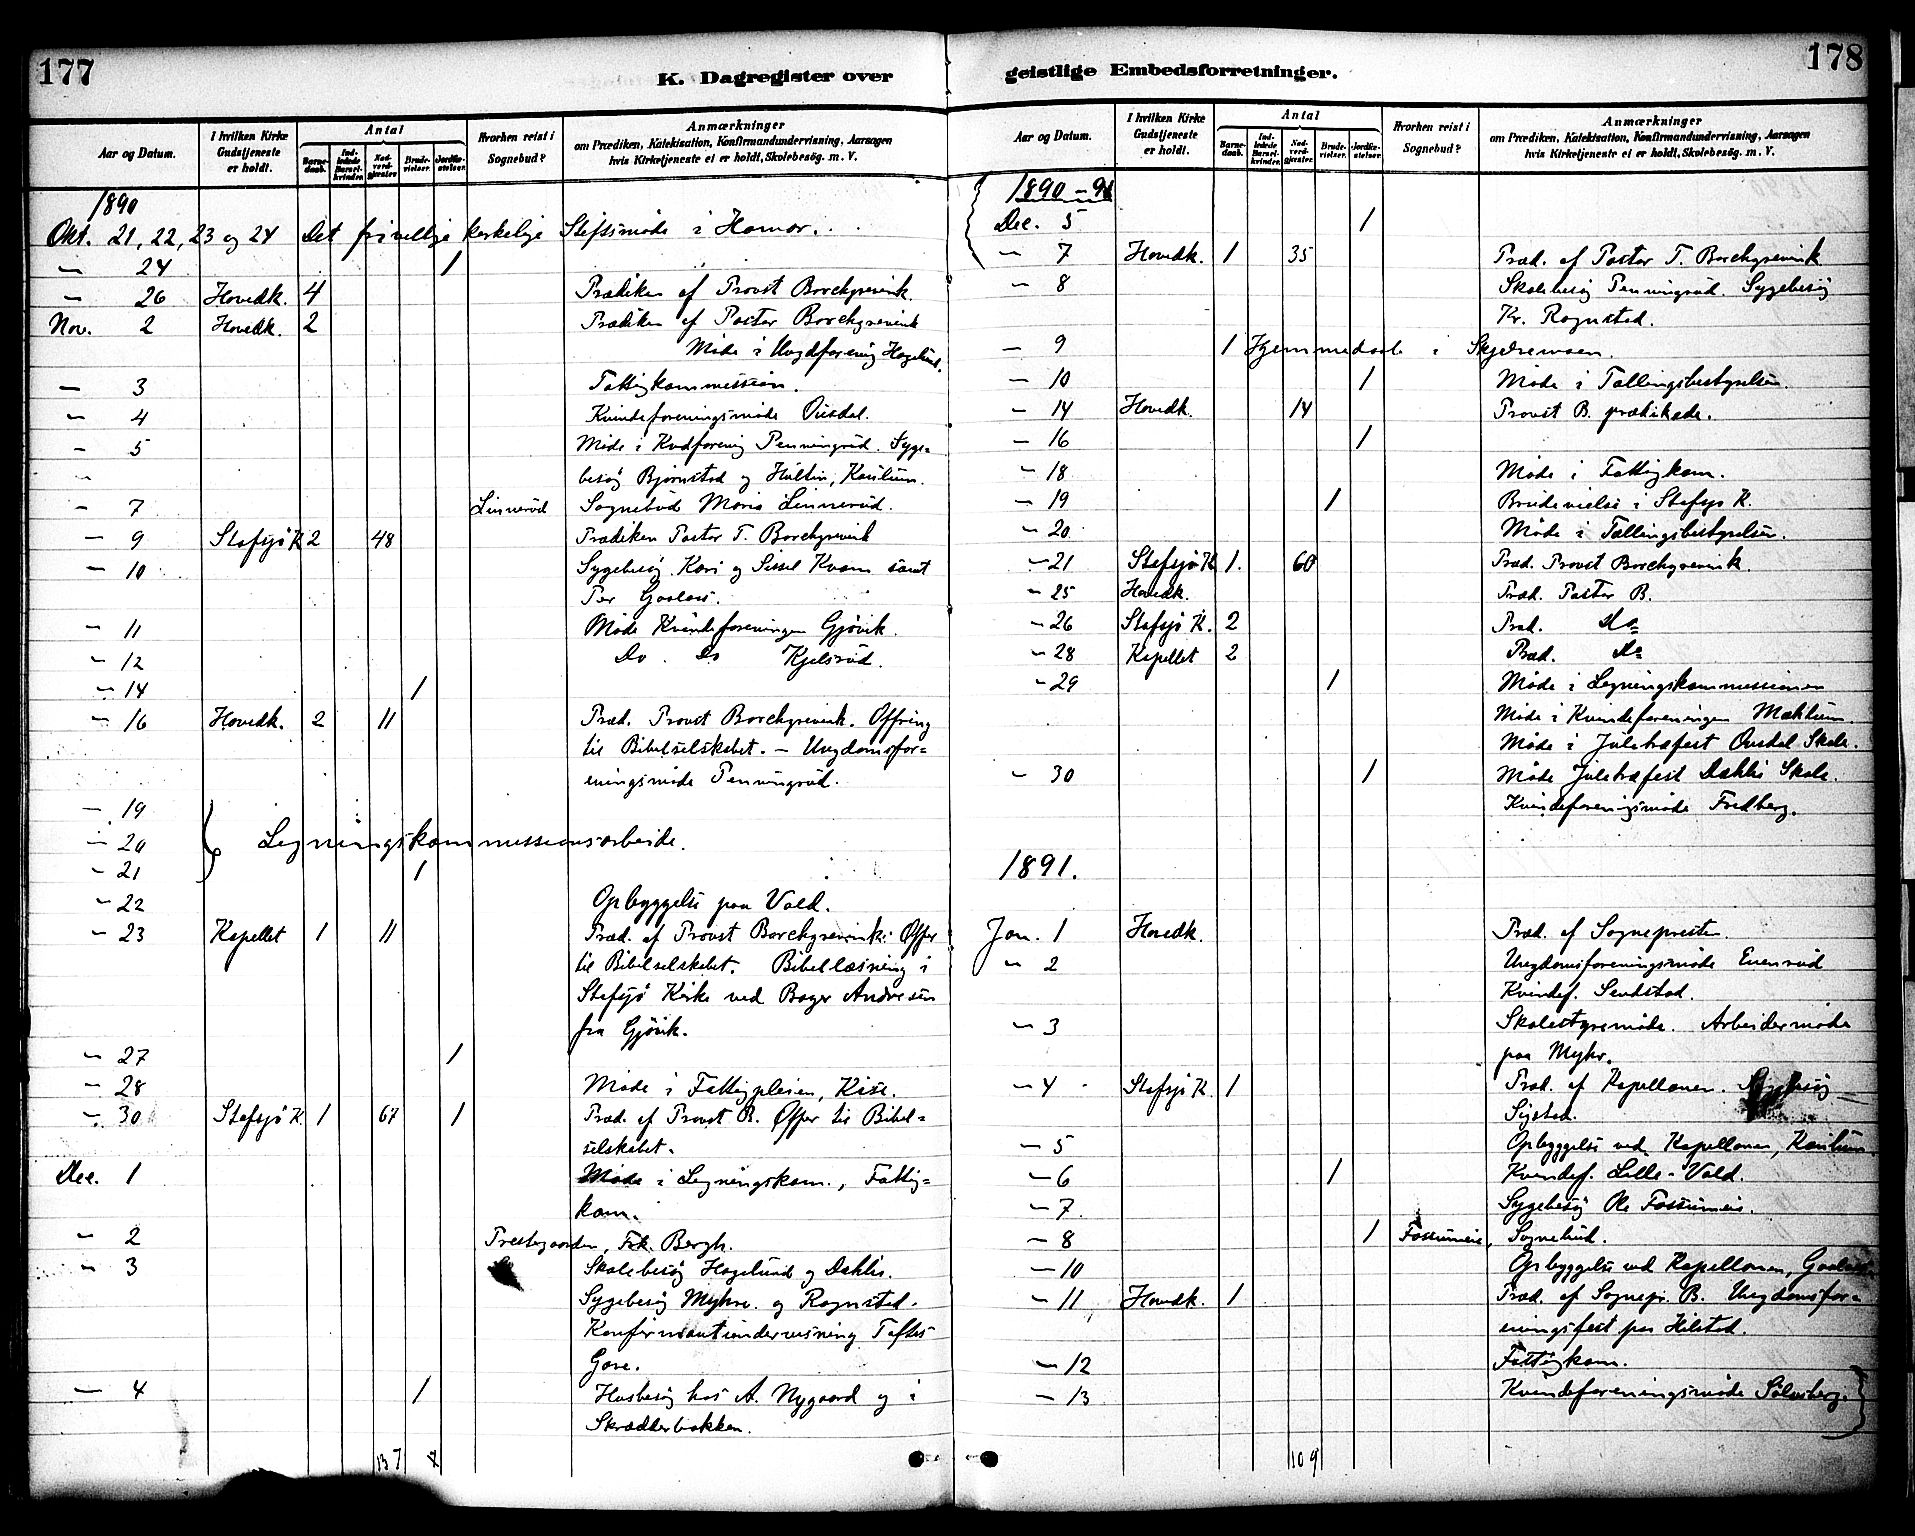 177
K. Dagregister over
Aar og Datum. I hvilken Kirke Gudstjeneste er holdt. Antal Barnedaab. Indledede Barselkvinder. Nadverdgjæster. Brudevielser. Jordfæstelser. Hvorhen reist i Sognebud? Anmærkninger om Prædiken, Katekisation, Konfirmandundervisning, Aarsagen hvis Kirketjeneste ei er holdt, Skolebesøg. m. V.
1890
Okt. 21, 22, 23 og 24 Det frivillige kirkelige Stiftsmøde i Hamar.
" 24 1
" 26 Hovedk. 4 Prædiken af Provst Borchgrevink.
Nov. 2 Hovedk. 2 Prædiken af Pastor Borchgrevink
Møde i Ungdforening Hagelund.
" 3 Fattigkommission.
" 4 Kvindeforeningsmøde Ousdal.
" 5 Møde i Kvdforening Penningrud. Syge-
" besøg Bjørnstad og Hultin, Kaulum.
" 7 Linnerud Sognebud Maria Linnerud.
" 9 Stafsjø K 2 48 Prædiken Pastor T. Borchgrevink
" 10 Sygebesøg Kari og Sissel Kvam samt
Per Gaalaas.
" 11 Møde Kvindeforeningen Gjøvik.
" 12 Do. Do Kjelsrud.
" 14 1
" 16 Hovedk. 2 11 Præd. Provst Borchgrevink. Offring
til Bibelselskabet. – Ungdomsfor-
eningsmøde Penningrud.
" 19
" 20 Ligningskommissionsarbeide.
" 21 1
" 22 Opbyggelse paa Vold.
" 23 Kapellet 1 11 Præd. af Provst Borchgrevink: Offer
til Bibelselskabet. Bibellæsning i
Stafsjø Kirke ved Bager Andersen
fra Gjøvik.
" 27 1
" 28 Møde i Fattigpleien, Kise.
" 30 Stafsjø K. 1 67 1 Præd. af Provst B. Offer til Bibel-
selskabet.
Dec. 1 Møde i Ligningskom., Fattig-
kom.
" 2 Prestegaarden, Frk. Bergh.
" 3 Skolebesøg Hagelund og Dahlis.
Sygebesøg Myhre. og Rognstad.
Konfirmantundervisning Toftes
Gave.
" 4 1 Husbesøg hos A. Nygaard og i
Skrædderbakken.
137
178
geistlige Embedsforretninger.
Aar og Datum. I hvilken Kirke Gudstjeneste er holdt. Antal Barnedaab. Indledede Barselkvinder. Nadverdgjæster. Brudevielser. Jordfæstelser. Hvorhen reist i Sognebud? Anmærkninger om Prædiken, Katekisation, Konfirmandundervisning, Aarsagen hvis Kirketjeneste ei er holdt, Skolebesøg. m. V.
1890 – 91
Dec. 5 1
" 7 Hovedk. 1 35 Præd. af Pastor T. Borchgrevink
" 8 Skolebesøg Penningrud. Sygebesøg
Kr. Rognstad.
" 9 1 Hjemmedaab i Skjelremoen.
" 10 1 Møde i Tællingsbestyrelsen.
" 14 Hovedk. 14 Provst B. prædikede.
" 16 1
" 18 Møde i Fattigkom.
" 19 1 Brudevielse i Stafsjø K.
" 20 Møde i Tællingsbestyrelsen.
" 21 Stafsjø K 1. 60 Præd. Provst Borchgrevink.
" 25 Hovedk. Præd. Pastor B.
" 26 Stafsjø K. 2 Præd. Do
" 28 Kapellet 2 Præd. Do
" 29 1 Møde i Ligningskommissionen
Møde i Kvindeforeningen Mæhlum.
Møde i Juletræfest Ousdal Skole.
" 30 1 Møde Juletræfest Dahlis Skole.
Kvindeforeningsmøde Fredberg.
1891.
Jan. 1 Hovedk. Præd. af Sognepresten.
" 2 Ungdomsforeningsmøde Evenrud
Kvindef. Sendstad.
" 3 Skolestyremøde. Arbeidermøde
paa Myhr.
" 4 Stafsjø K. 1 Præd. af Kapellanen. Sygebesøg
Sigstad.
" 5 Opbyggelse ved Kapellanen, Kaulum
" 6 1 Kvindef. Lille-Vold.
" 7. Sygebesøg Ole Fossumeie.
" 8 1 Fossumeie, Sognebud.
" 10 Opbyggelse ved Kapellanen, Gaalaas.
" 11 Hovedk. 1 Præd. af Sognepr. B. Ungdomsfor-
eningsfest paa Hilstad.
" 12 Fattigkom.
" 13 Kvindeforeningsmøde Sølvsberg.
109